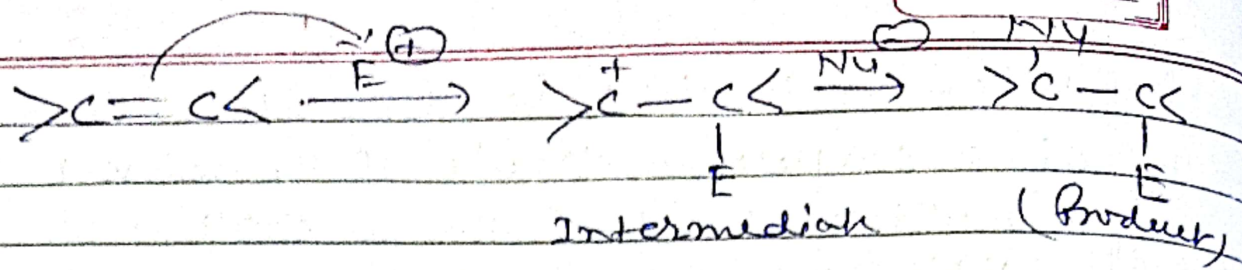 >C=C< E⊕ → >C⁺—C< Nu⊖ → Nu >C—C<
E E
Intermediate (Product)